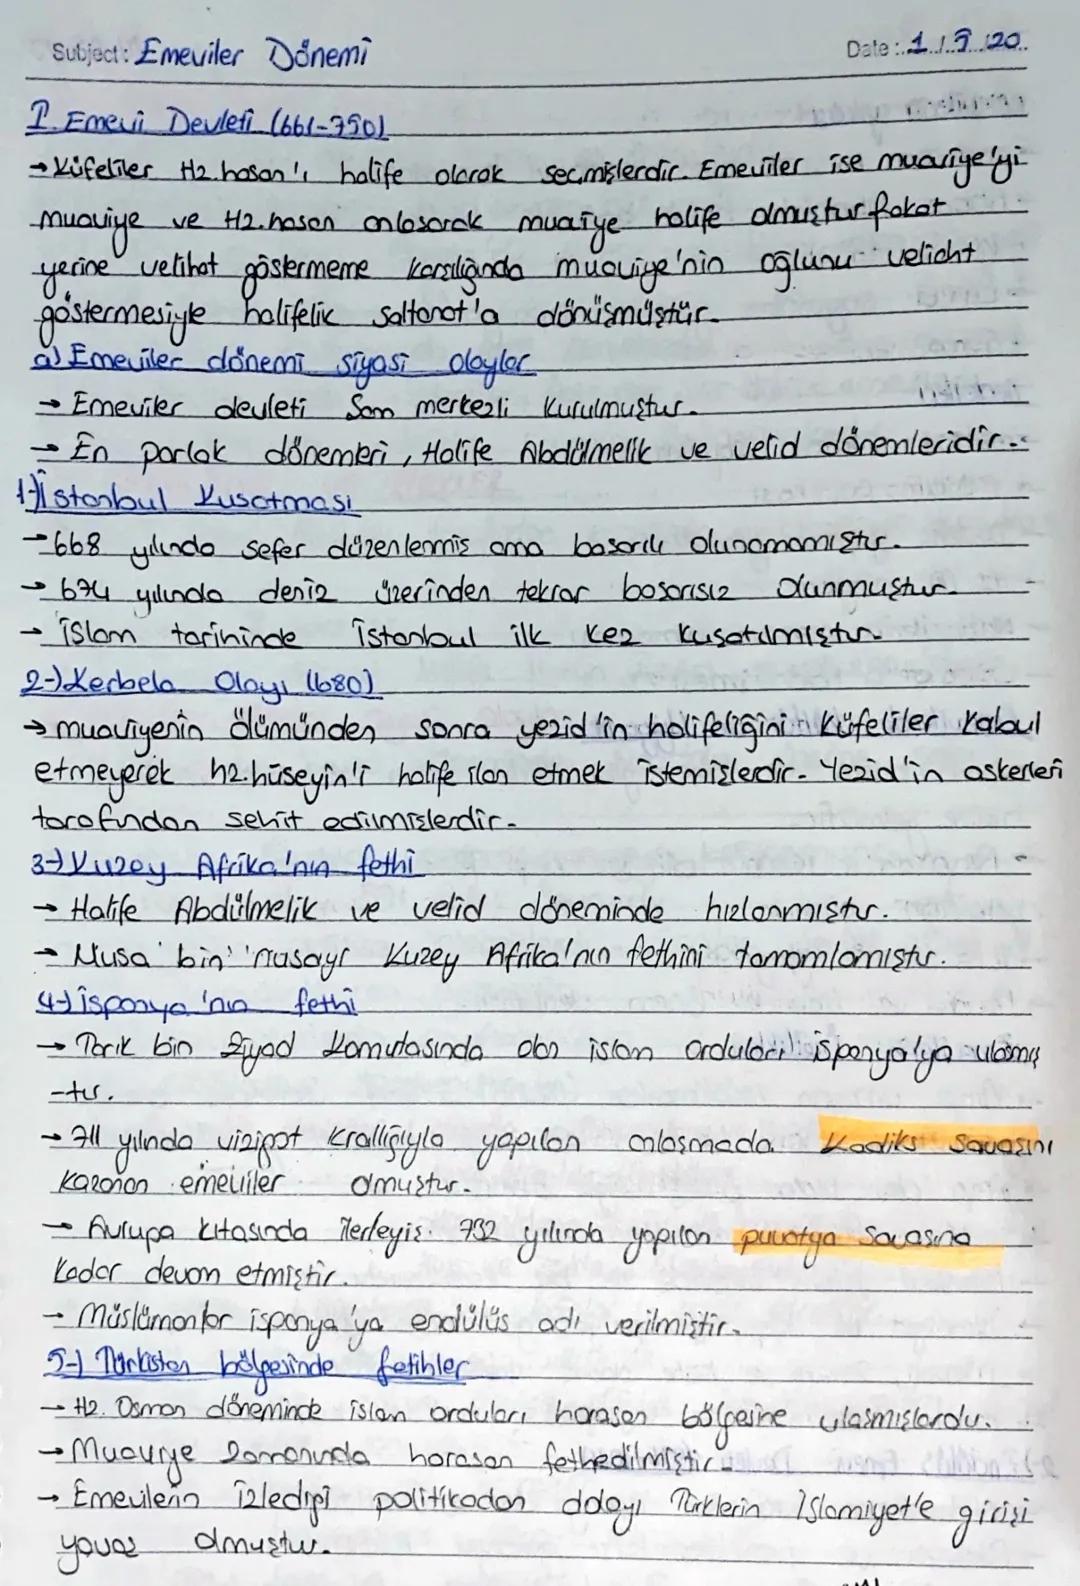 Subject: Emeviler Dönemi
Date: 1./9./20..
I. Emevi Devleti (661-750)
→ Küfeliler Hz. hasan'ı halife olarak seçmişlerdir. Emeviler ise muaviye'yi
muaviye ve Hz. hasan anlaşarak muaviye halife olmuştur fakat
yerine velihat göstermeme karşılığında muaviye'nin oğlunu veliaht
göstermesiyle halifelik saltanat'a dönüşmüştür.
a) Emeviler dönemi siyasi olaylar
→ Emeviler devleti Şam merkezli kurulmuştur.
→ En parlak dönemleri, Halife Abdülmelik ve velid dönemleridir.
1-) İstanbul Kuşatması
→ 668 yılında sefer düzenlenmiş ama başarılı olunamamıştır.
→ 674 yılında deniz üzerinden tekrar başarısız olunmuştur.
→ islam tarihinde istanbul ilk kez kuşatılmıştır
2-) Kerbela Olayı (680)
→ muaviyenin ölümünden sonra yezid'in halifeliğini küfeliler kabul
etmeyerek hz. hüseyin'i halife ilan etmek istemişlerdir. Yezid'in askerleri
tarafından şehit edilmişlerdir.
3-) Kuzey Afrika'nın fethi
→ Halife Abdülmelik ve velid döneminde hızlanmıştır.
→ Musa bin nusayr Kuzey Afrika'nın fethini tamamlamıştır.
4-) ispanya'nın fethi
→ Tarık bin Ziyad komutasında olan islam orduları ispanya'ya ulaşmış
-tır.
→ 711 yılında vizigot krallığıyla yapılan anlaşmada Kadiks Savaşını
kazanan emeviler olmuştur.
→ Avrupa kıtasında ilerleyiş 732 yılında yapılan puvatya Savaşına
kadar devam etmiştir.
→ Müslümanlar ispanya'ya endülüs adı verilmiştir.
5-) Türkistan bölgesinde fetihler
→ Hz. Osman döneminde islam orduları horasan bölgesine ulaşmışlardı.
→ Muaviye zamanında horasan fethedilmiştir.
→ Emevilerin izlediği politikadan dolayı Türklerin İslamiyet'e girişi
yavaş olmuştur.